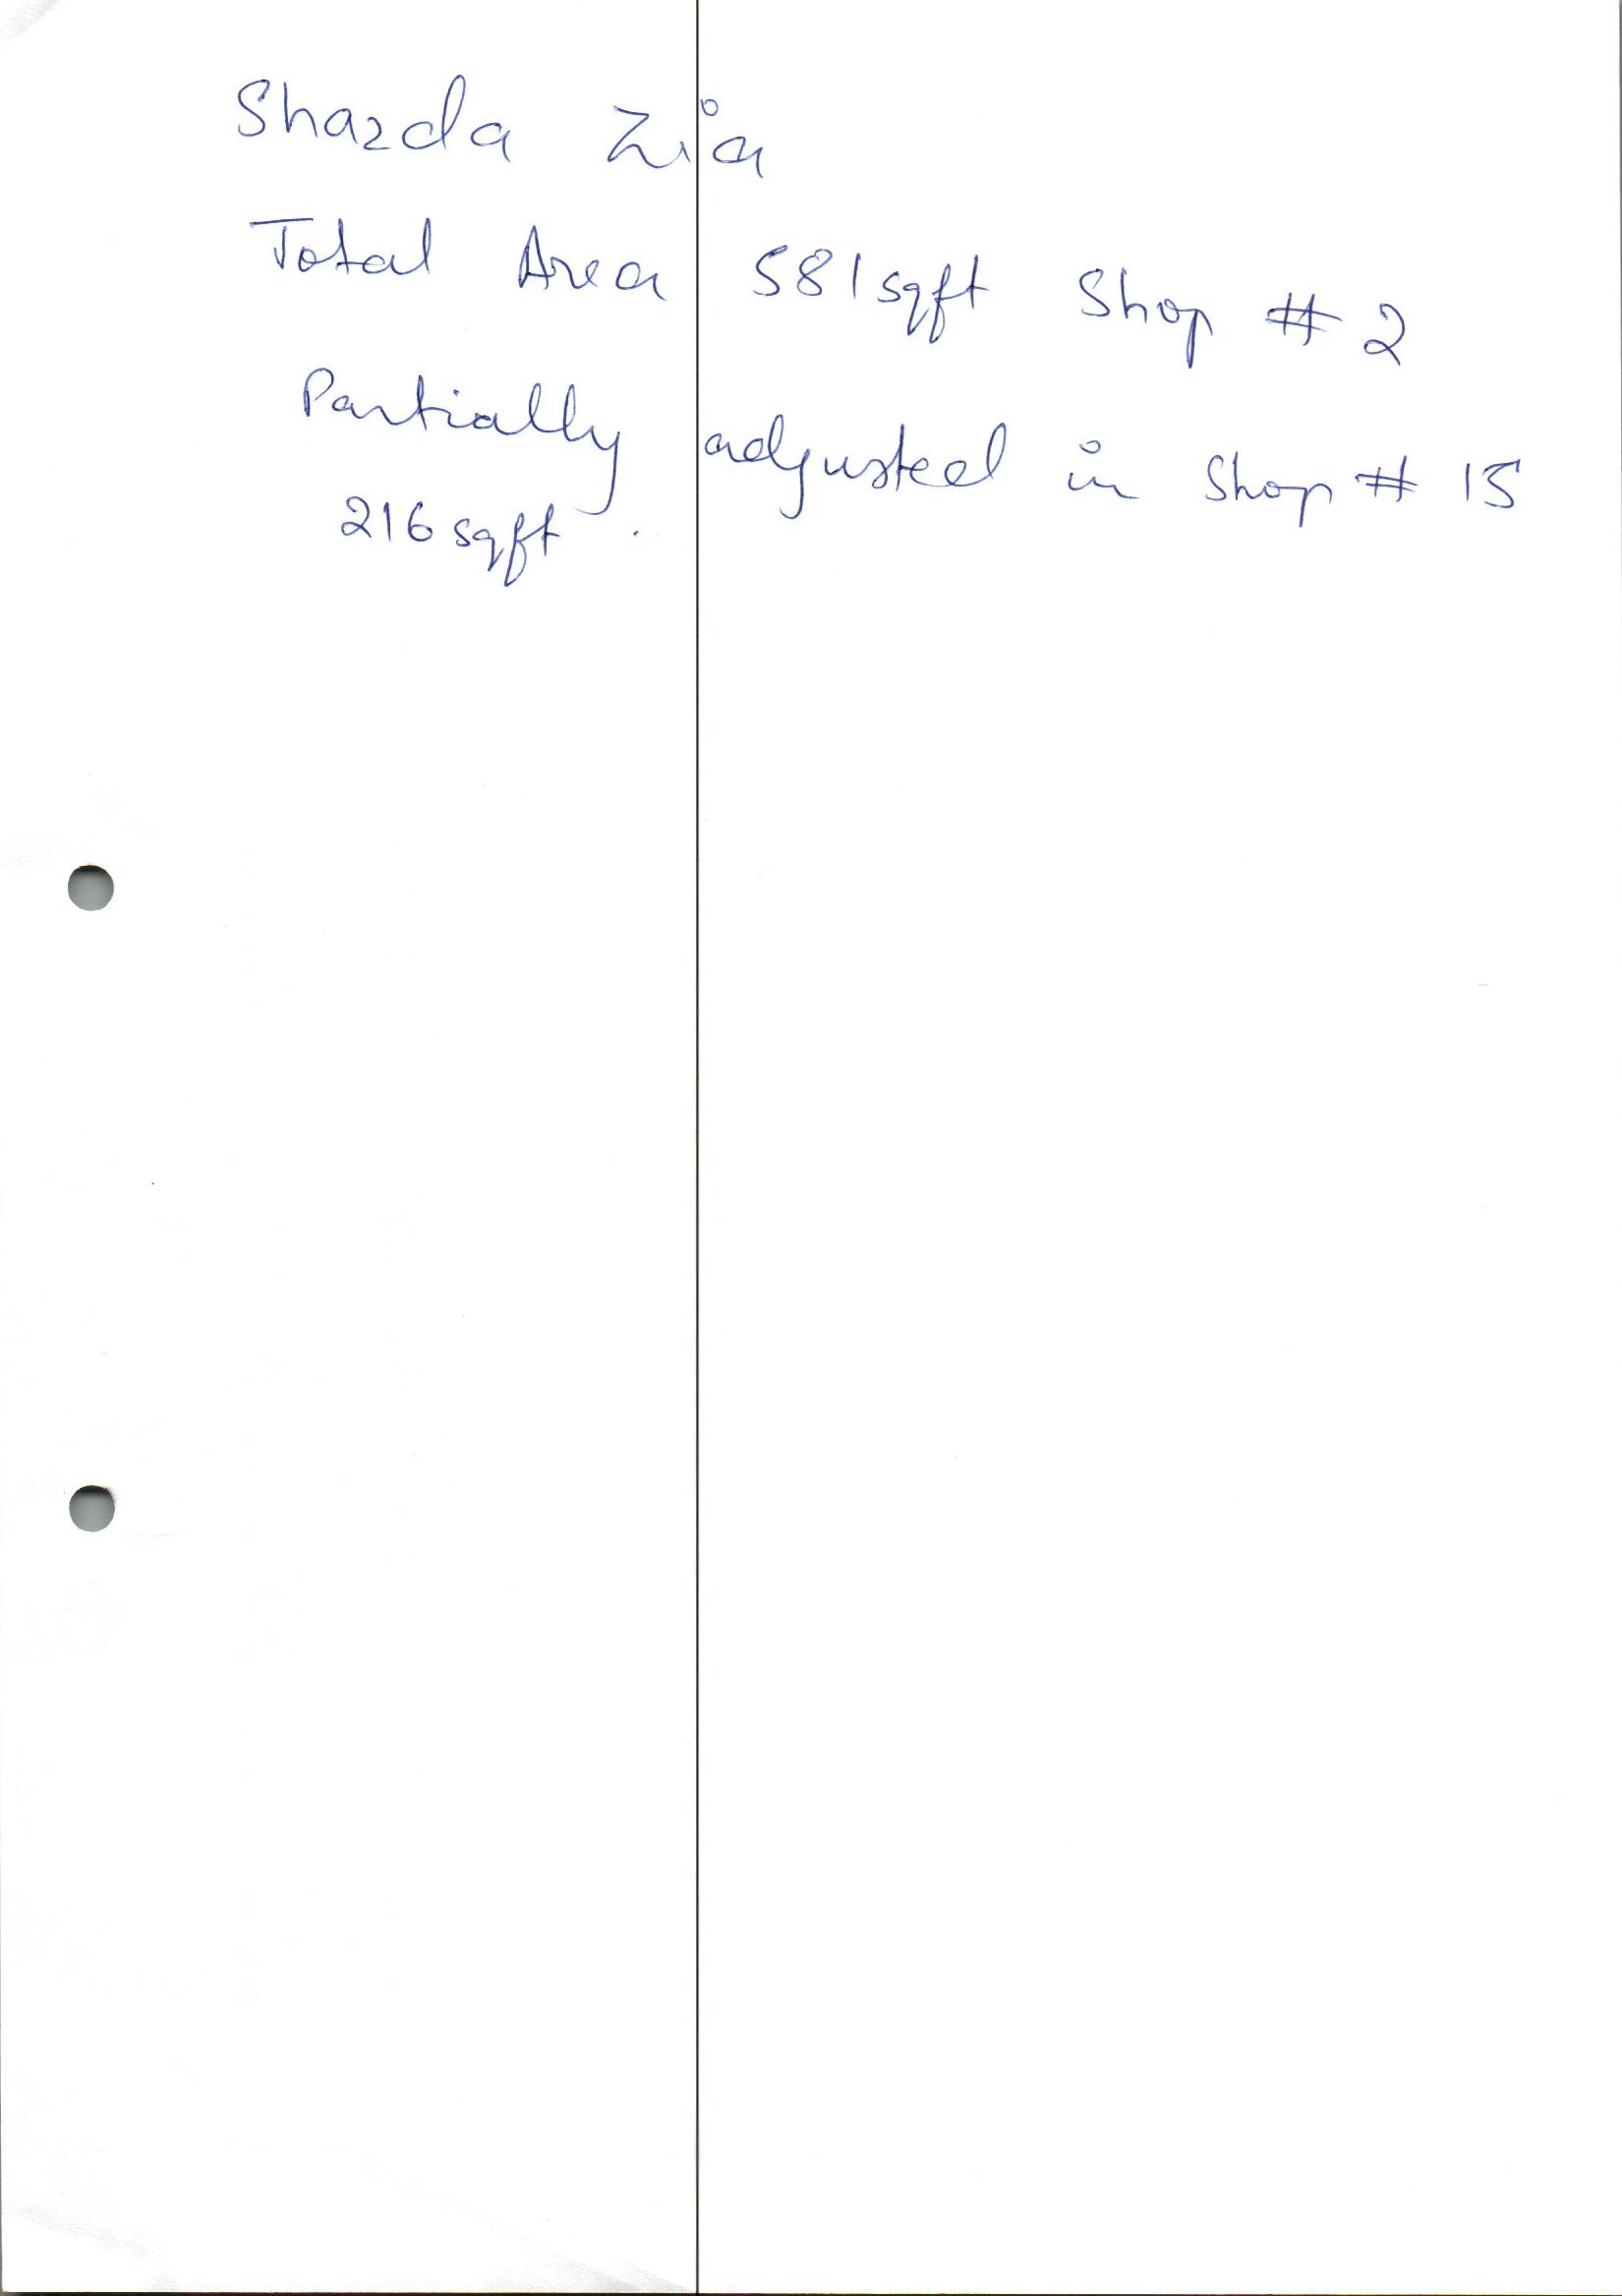 Shazda Zia
Total Area 581 sqft Shop # 2
Partially adjusted in Shop # 15
216 sqft.